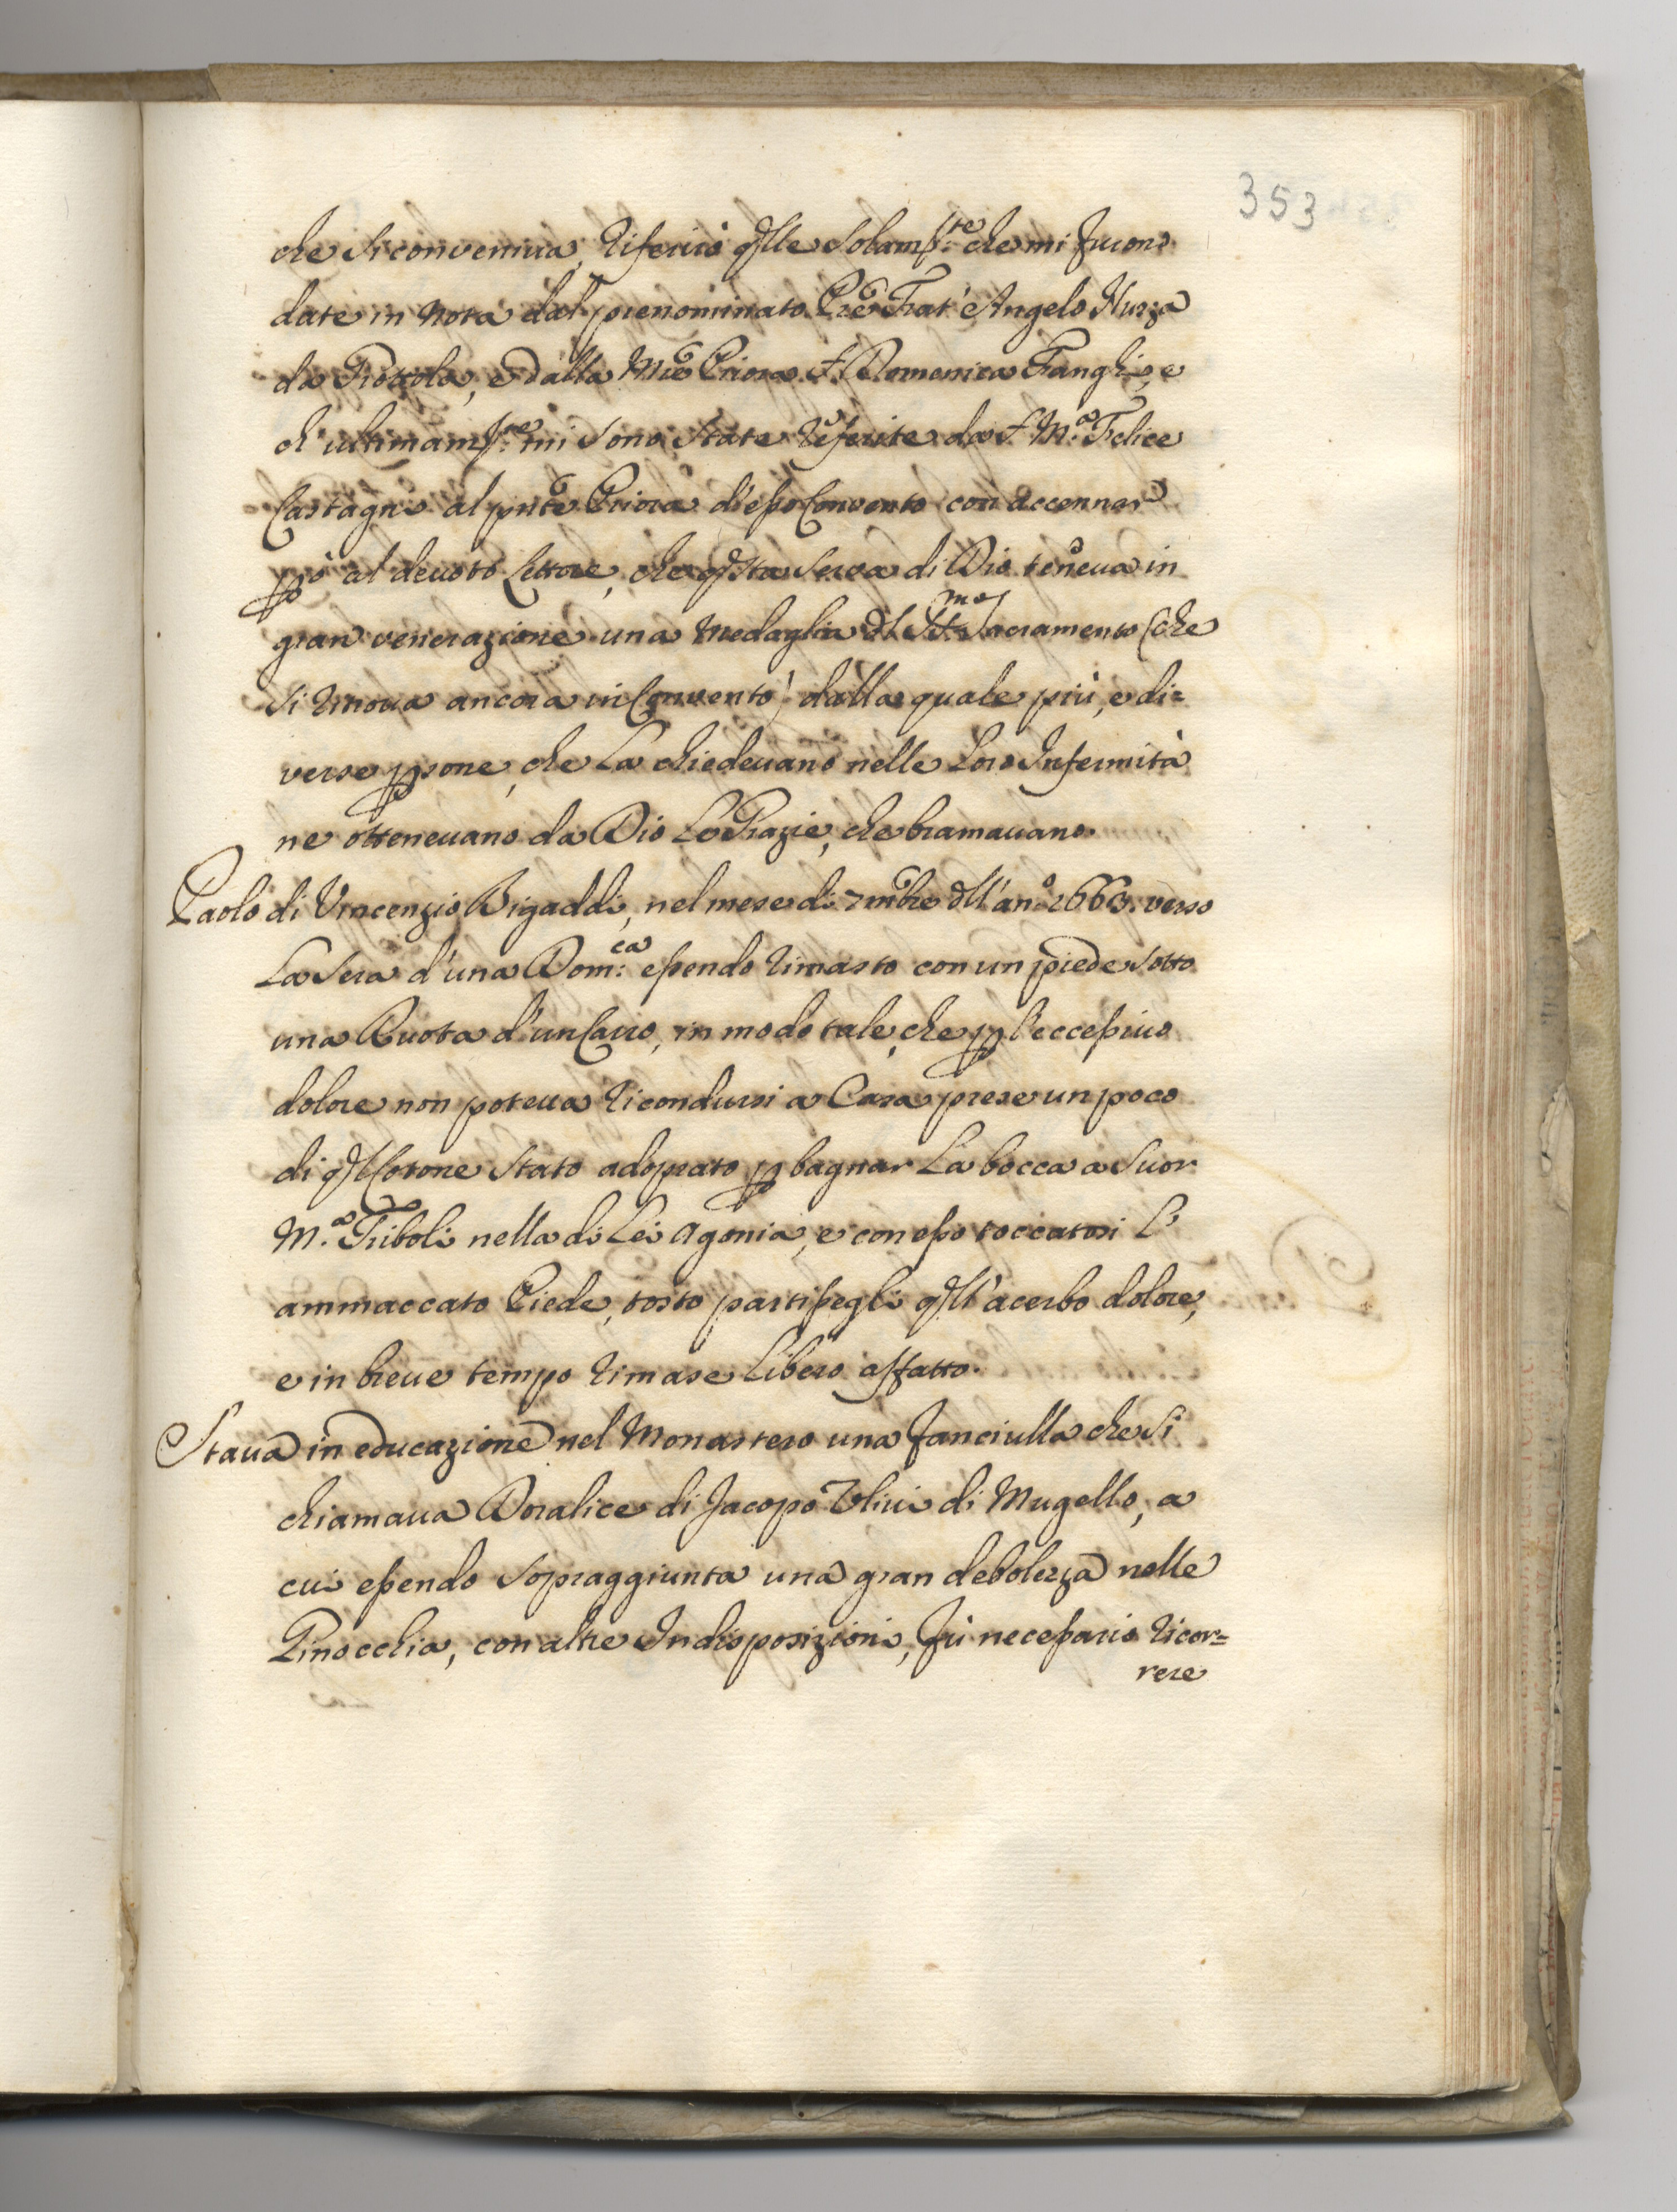 353
che si conveniva, riferirò qlle solamte: che mi furono
date in nota dal prenominato Pre Frat' Angelo Nurza
da Grottola, e dalla Mre Priora S. Domenica Fanghi, e
ch' ultimamte: mi sono state referite da S. M.a Felice
Castagni al pnte Priora d'esso Convento con accennar
pò al devoto Lettore, che qsta serva di Dio teneva in
gran venerazione una Medaglia dl SSmo Sacramento (che
si trova ancora in Convento) dalla quale più, e di=
verse psone, che La chiedevano nelle Loro Infermità
ne ottenevano da Dio Le Grazie, che bramavano.
Paolo di Vincenzio Bigaddi, nel mese di 7mbre dll' ano 1663. verso
La sera d'una Dom:ca essendo rimasto con un piede sotto
una Ruota d'un Carro, in modo tale, che p l'eccessivo
dolore non poteva ricondursi a Casa prese un poco
di ql Cotone stato adoprato p bagnar La bocca a Suor
M.a Triboli nella di Lei Agonia, e con esso toccatosi L'
ammaccato Piede, tosto partissegli qll' acerbo dolore,
e in breve tempo rimase Libero affatto.
Stava in educazione nel Monastero una fanciulla che si
chiamava Doralice di Jacopo Ulivi di Mugello, a
cui essendo sopraggiunta una gran debolezza nelle
Ginocchia, con altre Indisposizioni, fù necessario ricor=
rere